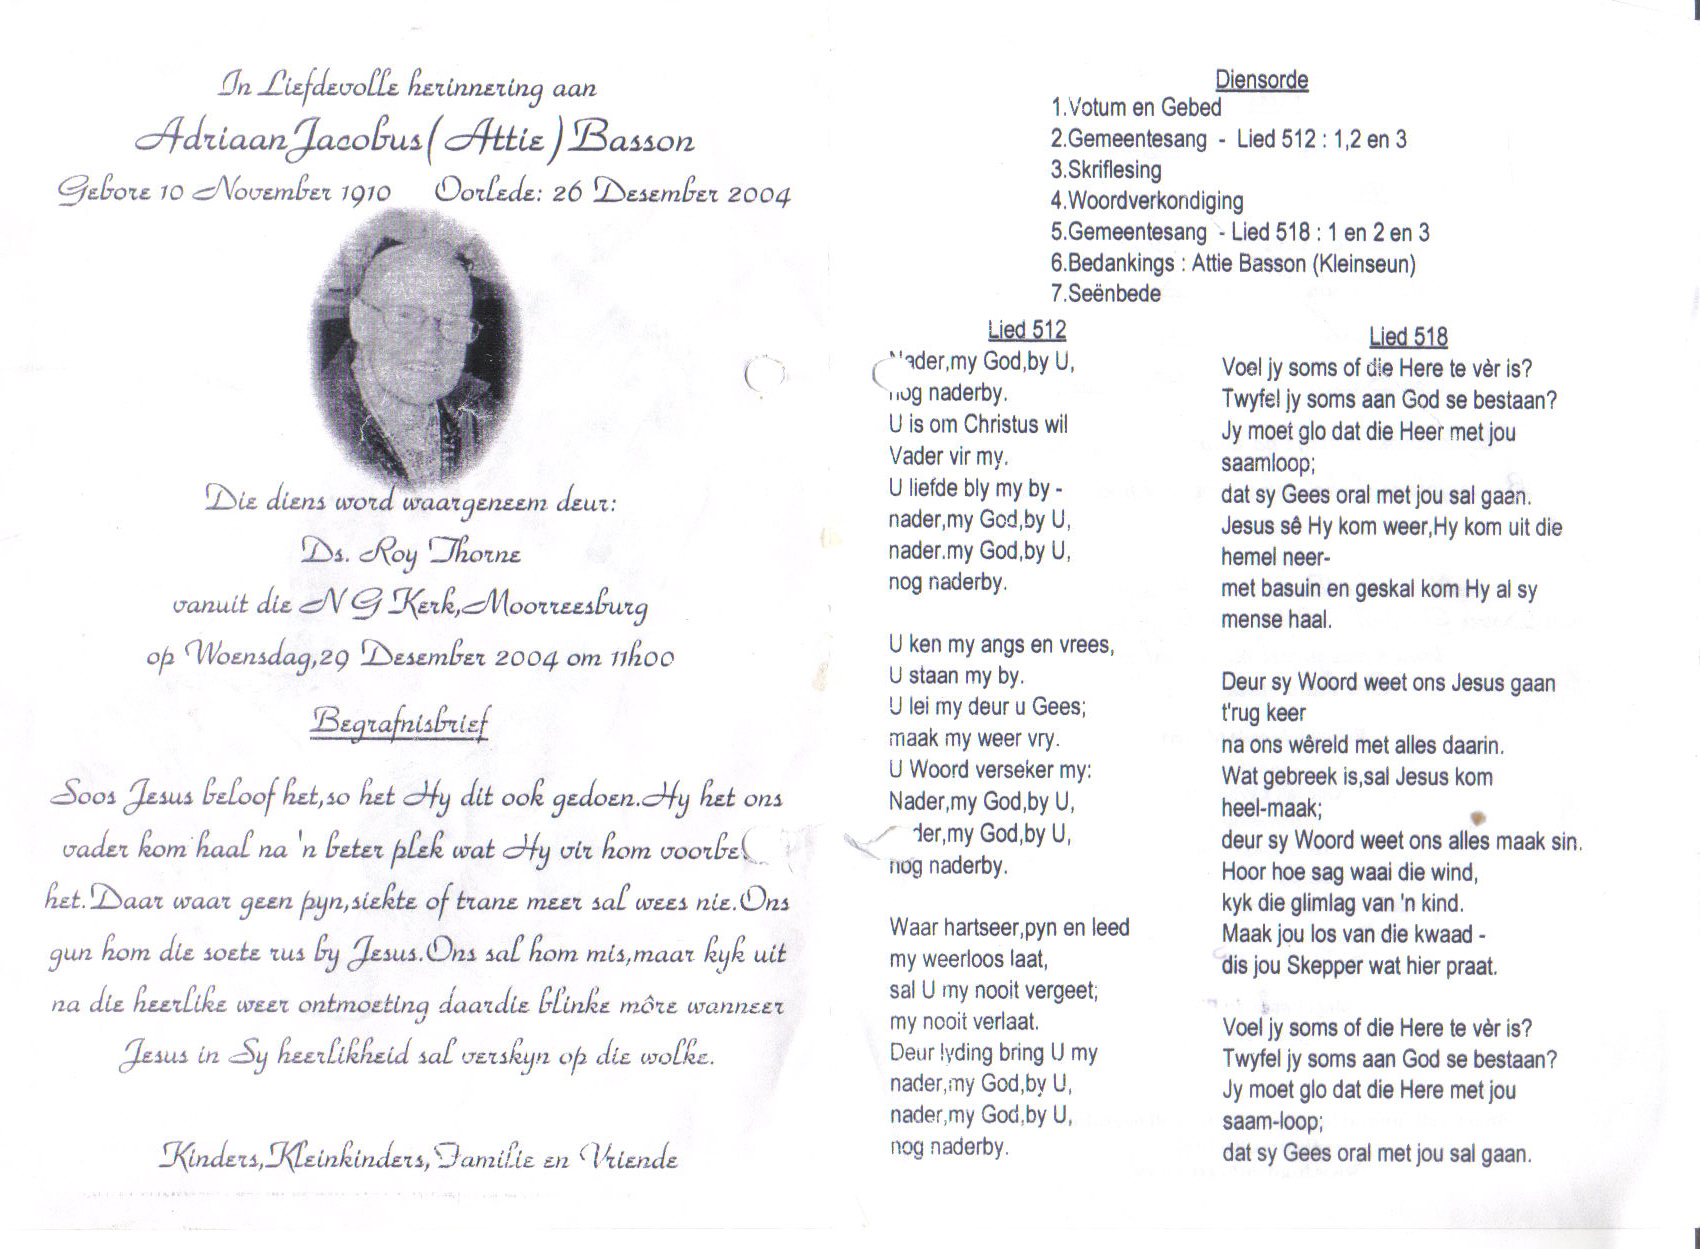 In Liefdevolle herinnering aan
Adriaan Jacobus (Attie) Basson
Gebore 10 November 1910 Oorlede: 26 Desember 2004
Die diens word waargeneem deur:
Ds. Roy Thorne
vanuit die N G Kerk,Moorreesburg
op Woensdag,29 Desember 2004 om 11h00
Begrafnisbrief
Soos Jesus beloof het,so het Hy dit ook gedoen.Hy het ons
vader kom haal na 'n beter plek wat Hy vir hom
het.Daar waar geen pyn,siekte of trane meer sal wees nie.Ons
gun hom die soete rus by Jesus.Ons sal hom mis,maar kyk uit
na die heerlike weer ontmoeting daardie blinke môre wanneer
Jesus in Sy heerlikheid sal verskyn op die wolke.
Kinders,Kleinkinders,Familie en Vriende
Diensorde
1.Votum en Gebed
2.Gemeentesang - Lied 512 : 1,2 en 3
3.Skriflesing
4.Woordverkondiging
5.Gemeentesang - Lied 518 : 1 en 2 en 3
6.Bedankings : Attie Basson (Kleinseun)
7.Seënbede
Lied 512
Nader,my God,by U,
nog naderby.
U is om Christus wil
Vader vir my.
U liefde bly my by -
nader,my God,by U,
nader.my God,by U,
nog naderby.
U ken my angs en vrees,
U staan my by.
U lei my deur u Gees;
maak my weer vry.
U Woord verseker my:
Nader,my God,by U,
der,my God,by U,
nog naderby.
Waar hartseer,pyn en leed
my weerloos laat,
sal U my nooit vergeet;
my nooit verlaat.
Deur lyding bring U my
nader,my God,by U,
nader,my God,by U,
nog naderby.
Lied 518
Voel jy soms of die Here te vèr is?
Twyfel jy soms aan God se bestaan?
Jy moet glo dat die Heer met jou
saamloop;
dat sy Gees oral met jou sal gaan.
Jesus sê Hy kom weer,Hy kom uit die
hemel neer-
met basuin en geskal kom Hy al sy
mense haal.
Deur sy Woord weet ons Jesus gaan
t'rug keer
na ons wêreld met alles daarin.
Wat gebreek is,sal Jesus kom
heel-maak;
deur sy Woord weet ons alles maak sin.
Hoor hoe sag waai die wind,
kyk die glimlag van 'n kind.
Maak jou los van die kwaad -
dis jou Skepper wat hier praat.
Voel jy soms of die Here te vèr is?
Twyfel jy soms aan God se bestaan?
Jy moet glo dat die Here met jou
saam-loop;
dat sy Gees oral met jou sal gaan.